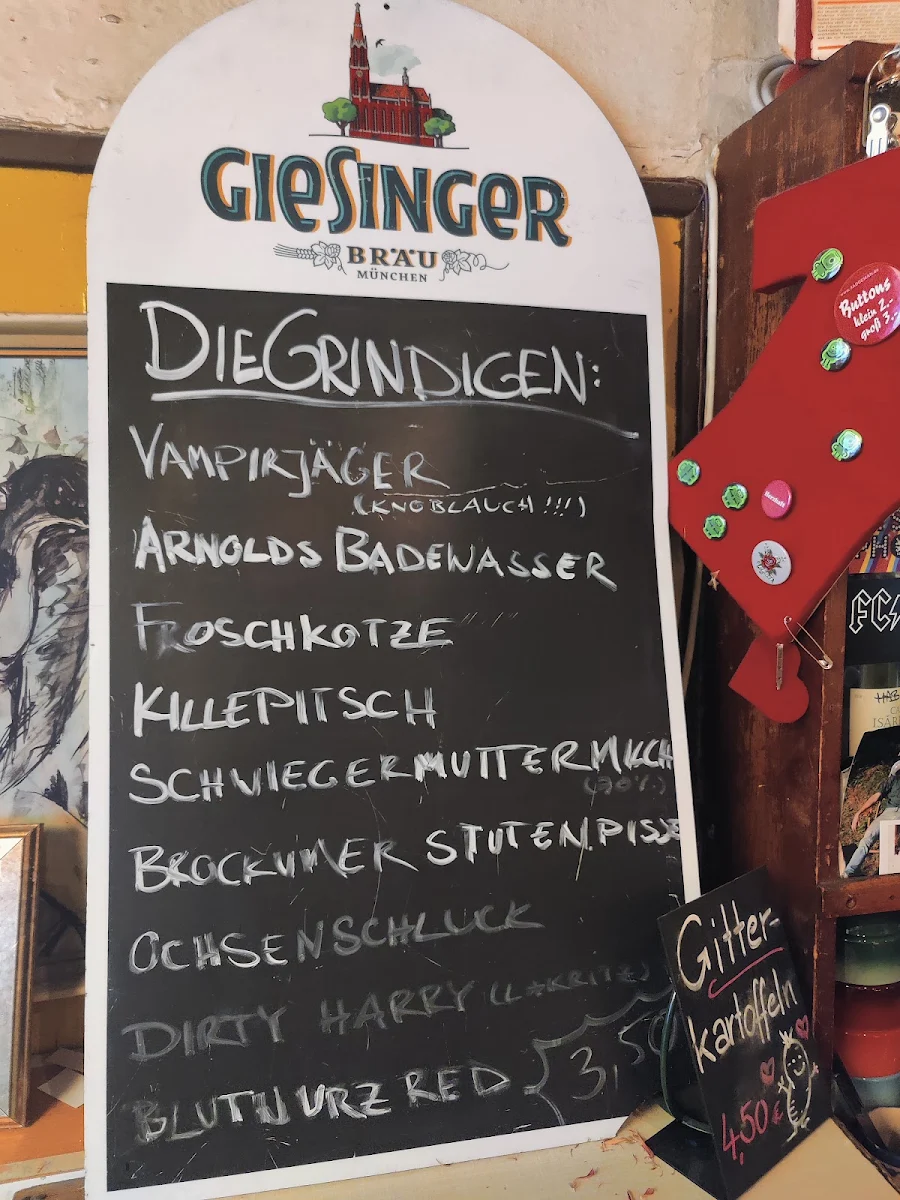 GIESINGER
BRÄU
MÜNCHEN
DIE GRINDIGEN:
VAMPIRJÄGER
(KNOBLAUCH!!!)
ARNOLDS BADEWASSER
FROSCHKOTZE
KILLEPITSCH
SCHWIEGERMUTTERMILCH
(70%)
BROCKUMER STUTENPISSE
OCHSENSCHLUCK
DIRTY HARRY (LAKRITZ)
BLUTWURZ RED
3,50
Gitter-
kartoffeln
4,50€
Buttons
klein 2.-
groß 3.-
FC